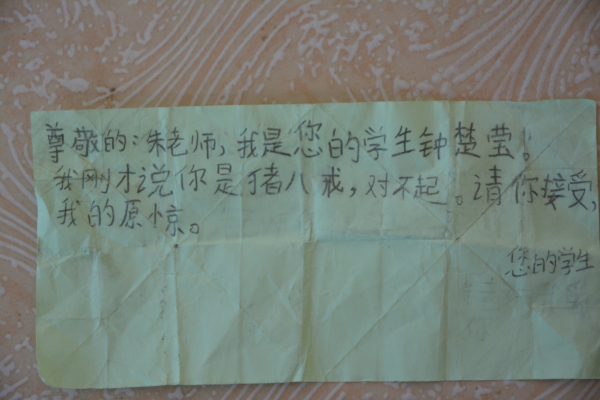 尊敬的:朱老师,我是您的学生钟楚莹!
我刚才说你是猪八戒,对不起。请你接受,
我的原惊。
您的学生